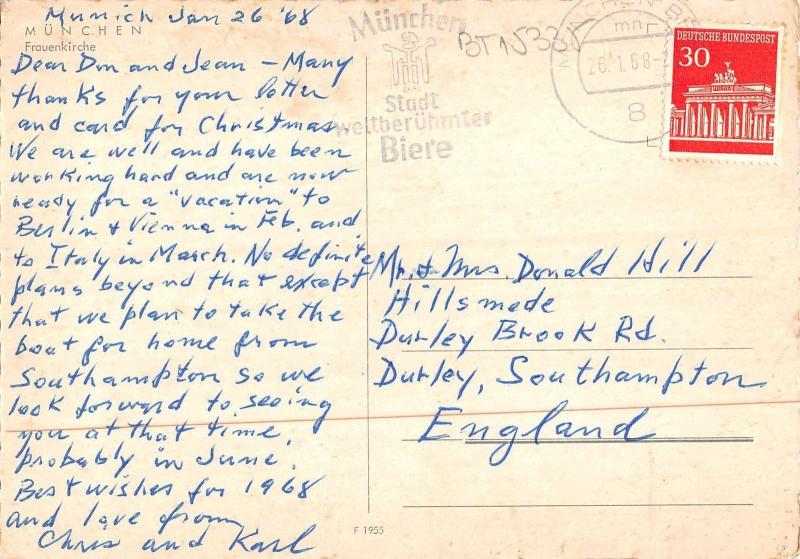 Munich Jan 26 '68
MÜNCHEN
Frauenkirche
Dear Don and Jean – Many
thanks for your letter
and card for Christmas.
We are well and have been
working hard and are now
ready for a "vacation" to
Berlin & Vienna in Feb. and
to Italy in March. No definite
plans beyond that except
that we plan to take the
boat for home from
Southampton so we
look forward to seeing
you at that time,
probably in June.
Best wishes for 1968
and love from
Chris and Karl
München
Stadt
weltberühmter
Biere
BT15338
MÜNCHEN-BP
mn
26.1.68
8
DEUTSCHE BUNDESPOST
30
Mr. & Mrs. Donald Hill
Hillsmede
Durley Brook Rd.
Durley, Southampton
England
F 1955